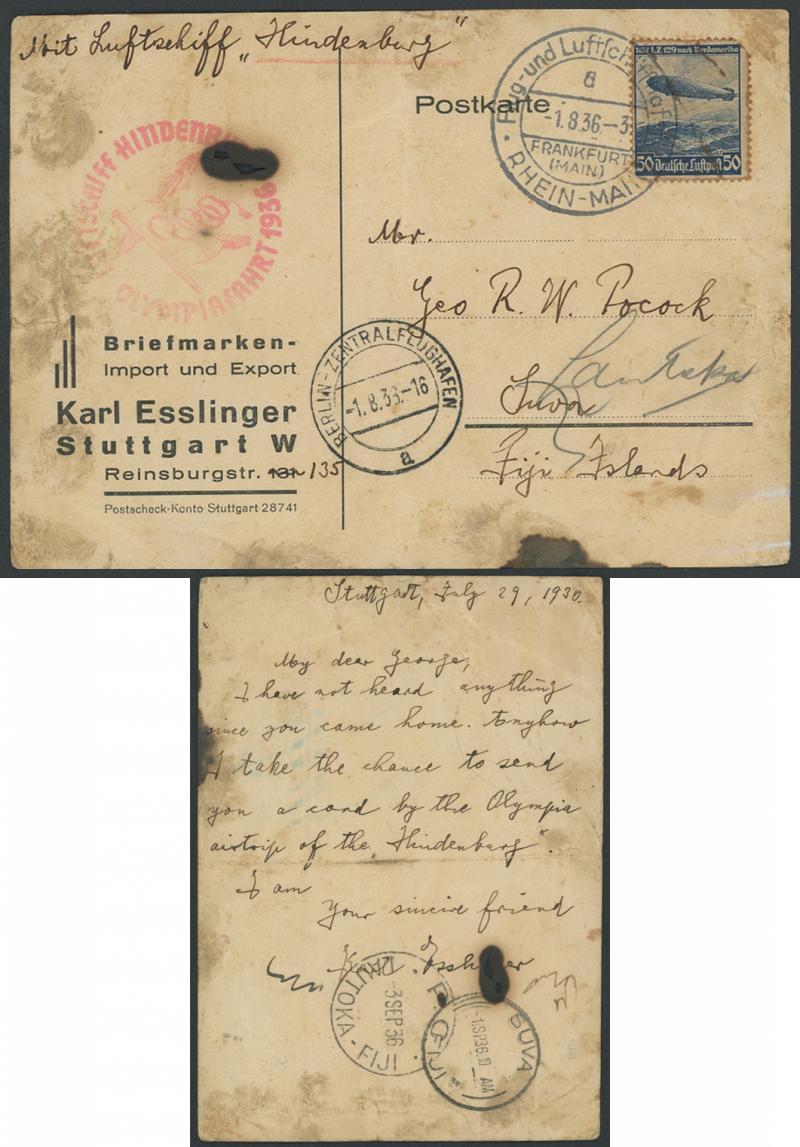 Mit Luftschiff „Hindenburg"
Postkarte
Flug-und Luftschiffhafen
a
-1.8.36.-3
FRANKFURT
(MAIN)
RHEIN-MAIN
Mit LZ 129 nach Nordamerika
50 Deutsche Luftpost 50
LUFTSCHIFF HINDENBURG
OLYMPIAFAHRT 1936
Mr.
Geo R. W. Pocock
Suva
Lautoka
Fiji Islands
Briefmarken-
Import und Export
Karl Esslinger
Stuttgart W
Reinsburgstr. 131 135
Postscheck-Konto Stuttgart 28741
BERLIN-ZENTRALFLUGHAFEN
-1.8.36.-16
a
Stuttgart, July 29, 1936.
My dear George,
I have not heard anything
since you came home. Anyhow
I take the chance to send
you a card by the Olympia
airtrip of the „Hindenburg".
I am
Your sincire friend
Karl Esslinger
LAUTOKA-FIJI
-3 SEP 36
G.P.O.
SUVA
FIJI
-1.SP36.10 AM